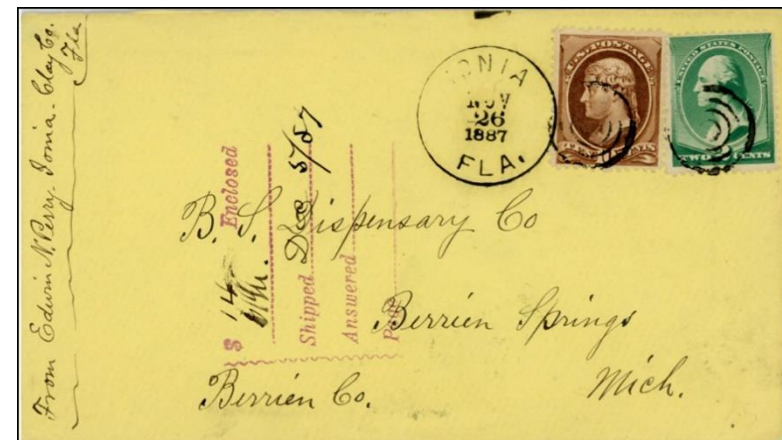 From Edwin N. Perry. Ionia. Clay Co.
Fla
IONIA
NOV
26
1887
FLA.
U.S. POSTAGE
TEN CENTS
UNITED STATES POSTAGE
TWO CENTS
$ 14 Enclosed
Shipped Dec 5/87
Answered
B. S. Dispensary Co
Berrien Springs
Berrien Co. Mich.